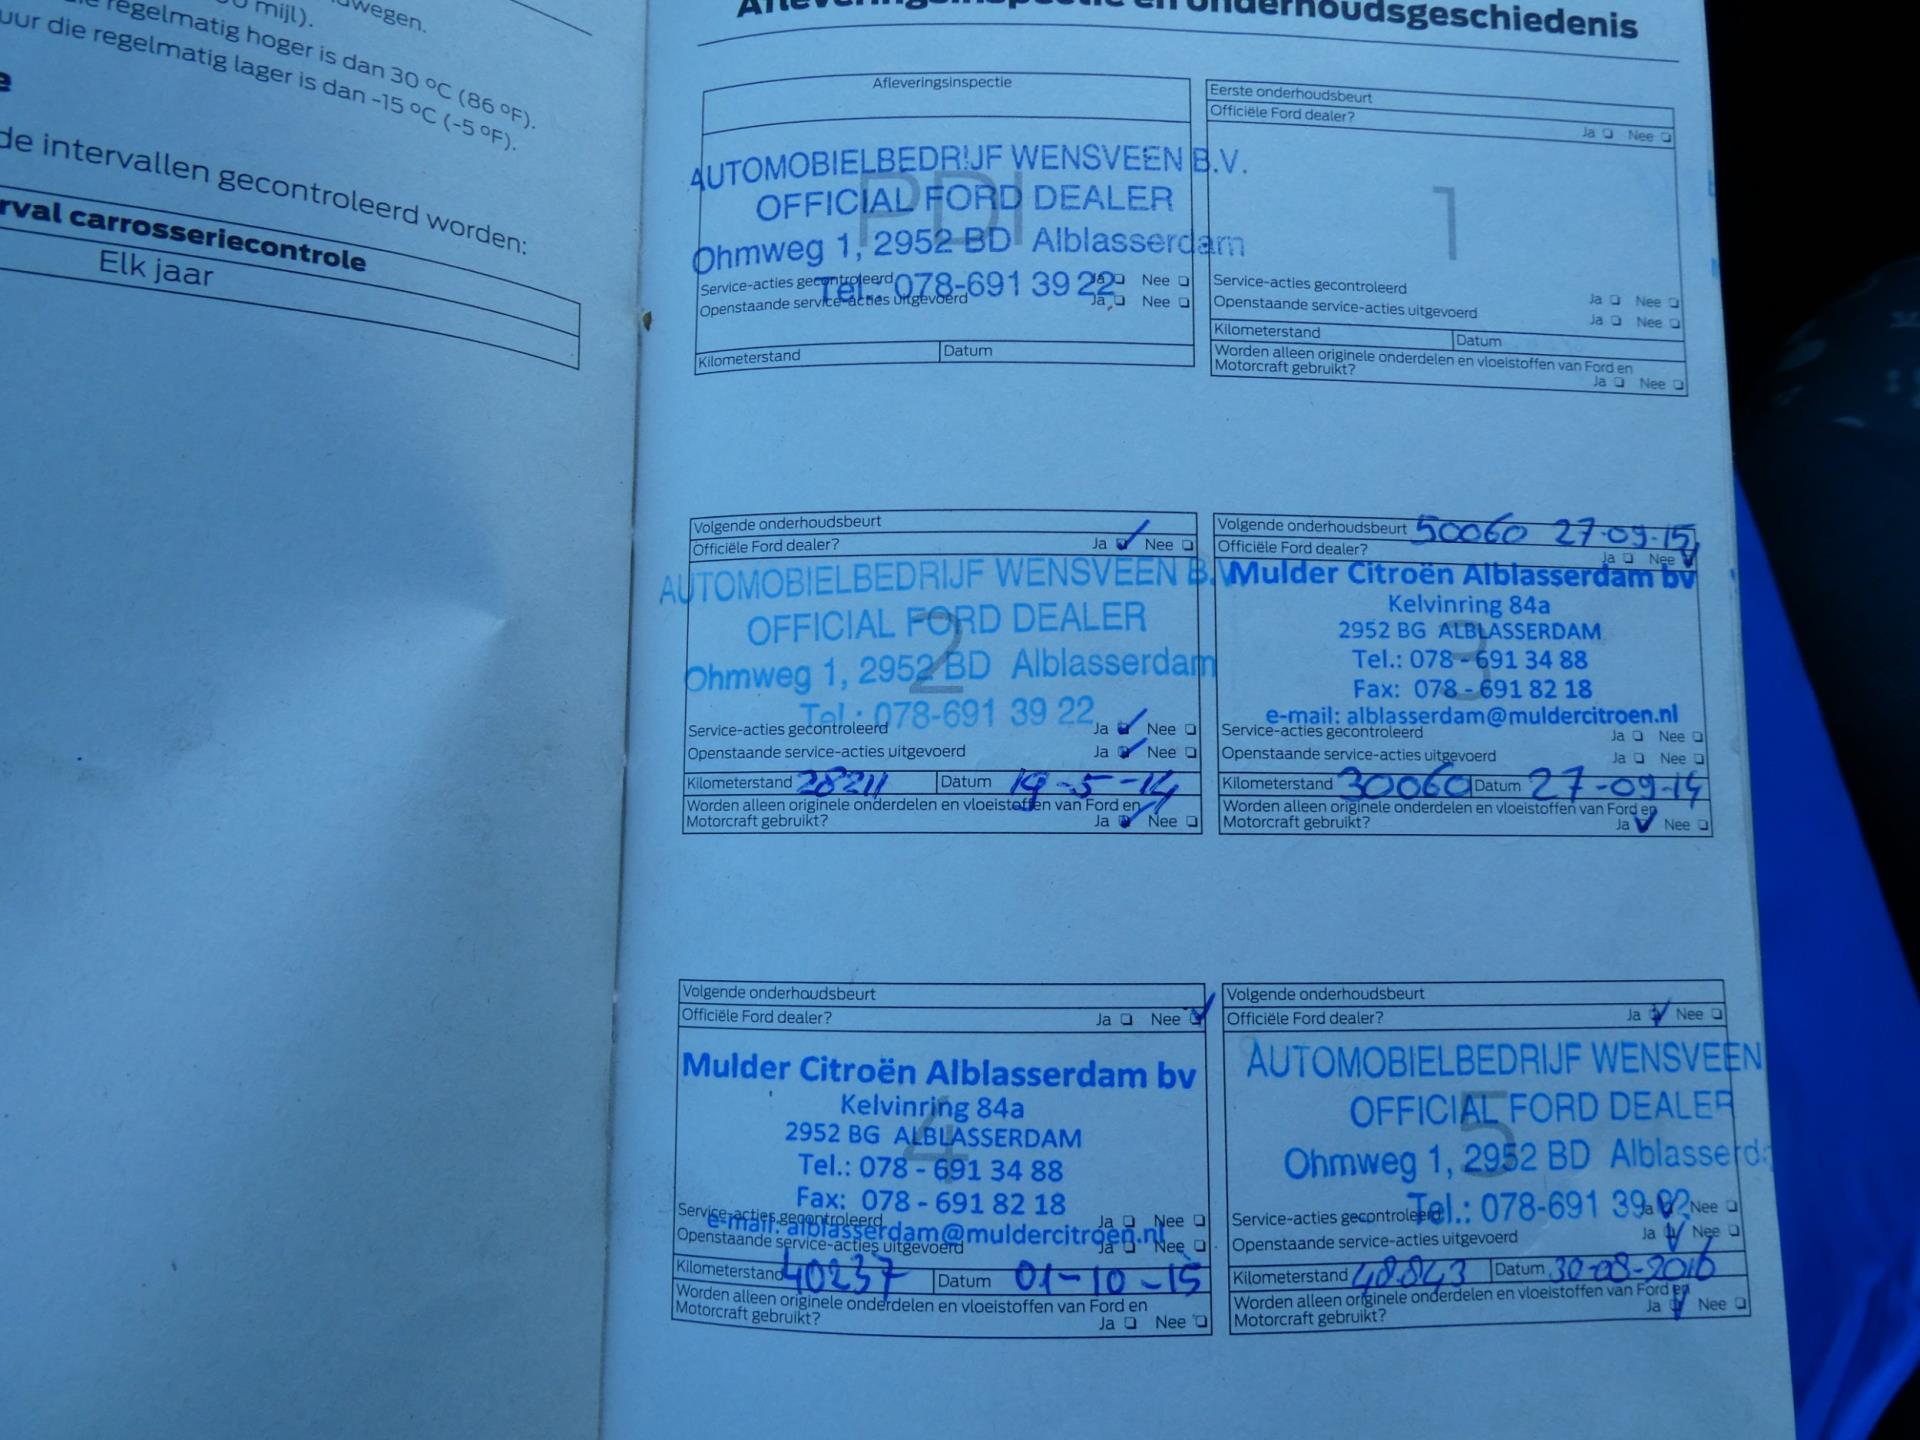 mijl).
regelmatig hoger is dan 30 °C (86 °F).
uur die regelmatig lager is dan -15 °C (-5 °F).
de intervallen gecontroleerd worden:
carrosseriecontrole
Elk jaar
Afleveringsinspectie en onderhoudsgeschiedenis
Afleveringsinspectie
PDI
AUTOMOBIELBEDRIJF WENSVEEN B.V.
OFFICIAL FORD DEALER
Ohmweg 1, 2952 BD Alblasserdam
Tel.: 078-691 39 22
Service-acties gecontroleerd Ja Nee
Openstaande service-acties uitgevoerd Ja Nee
Kilometerstand Datum
Eerste onderhoudsbeurt
Officiële Ford dealer? Ja Nee
1
Service-acties gecontroleerd Ja Nee
Openstaande service-acties uitgevoerd Ja Nee
Kilometerstand Datum
Worden alleen originele onderdelen en vloeistoffen van Ford en
Motorcraft gebruikt? Ja Nee
Volgende onderhoudsbeurt
Officiële Ford dealer? Ja Nee
2
AUTOMOBIELBEDRIJF WENSVEEN B.V
OFFICIAL FORD DEALER
Ohmweg 1, 2952 BD Alblasserdam
Tel.: 078-691 39 22
Service-acties gecontroleerd Ja Nee
Openstaande service-acties uitgevoerd Ja Nee
Kilometerstand 28211 Datum 19-5-14
Worden alleen originele onderdelen en vloeistoffen van Ford en
Motorcraft gebruikt? Ja Nee
Volgende onderhoudsbeurt 50060 27-09-15
Officiële Ford dealer? Ja Nee
3
Mulder Citroën Alblasserdam bv
Kelvinring 84a
2952 BG ALBLASSERDAM
Tel.: 078 - 691 34 88
Fax: 078 - 691 82 18
e-mail: alblasserdam@muldercitroen.nl
Service-acties gecontroleerd Ja Nee
Openstaande service-acties uitgevoerd Ja Nee
Kilometerstand 30060 Datum 27-09-14
Worden alleen originele onderdelen en vloeistoffen van Ford en
Motorcraft gebruikt? Ja Nee
Volgende onderhoudsbeurt
Officiële Ford dealer? Ja Nee
4
Mulder Citroën Alblasserdam bv
Kelvinring 84a
2952 BG ALBLASSERDAM
Tel.: 078 - 691 34 88
Fax: 078 - 691 82 18
e-mail: alblasserdam@muldercitroen.nl
Service-acties gecontroleerd Ja Nee
Openstaande service-acties uitgevoerd Ja Nee
Kilometerstand 40237 Datum 01-10-15
Worden alleen originele onderdelen en vloeistoffen van Ford en
Motorcraft gebruikt? Ja Nee
Volgende onderhoudsbeurt
Officiële Ford dealer? Ja Nee
5
AUTOMOBIELBEDRIJF WENSVEEN
OFFICIAL FORD DEALER
Ohmweg 1, 2952 BD Alblasserd
Tel.: 078-691 39 22
Service-acties gecontroleerd Ja Nee
Openstaande service-acties uitgevoerd Ja Nee
Kilometerstand 48843 Datum 30-08-2016
Worden alleen originele onderdelen en vloeistoffen van Ford en
Motorcraft gebruikt? Ja Nee